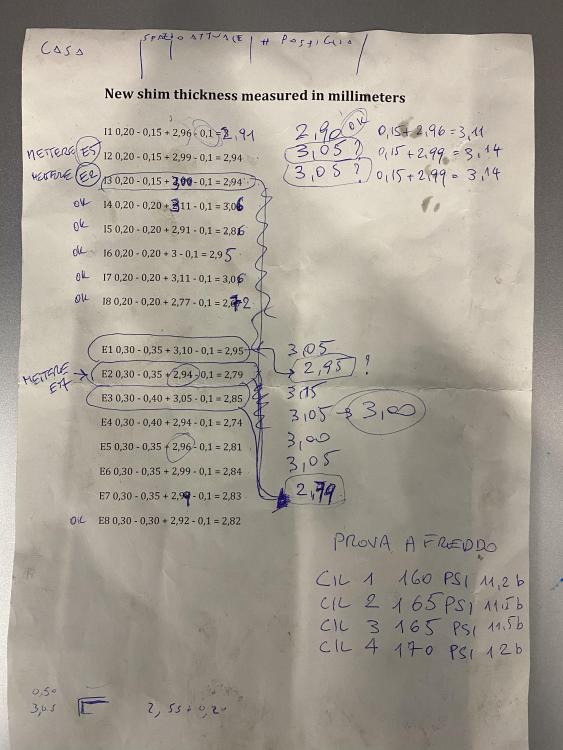 CASA
SPAZIO ATTUALE | # PASTIGLIA
New shim thickness measured in millimeters
I1 0,20 - 0,15 + 2,96 - 0,1 = 2,91 2,90 OK 0,15 + 2,96 = 3,11
METTERE E5 I2 0,20 - 0,15 + 2,99 - 0,1 = 2,94 3,05 ? 0,15 + 2,99 = 3,14
METTERE E2 I3 0,20 - 0,15 + 3,00 - 0,1 = 2,94 3,05 ? 0,15 + 2,99 = 3,14
OK I4 0,20 - 0,20 + 3,11 - 0,1 = 3,06
OK I5 0,20 - 0,20 + 2,91 - 0,1 = 2,86
OK I6 0,20 - 0,20 + 3 - 0,1 = 2,95
OK I7 0,20 - 0,20 + 3,11 - 0,1 = 3,06
OK I8 0,20 - 0,20 + 2,77 - 0,1 = 2,72
E1 0,30 - 0,35 + 3,10 - 0,1 = 2,95 3,05
METTERE E7 E2 0,30 - 0,35 + 2,94 - 0,1 = 2,79 2,95 ?
E3 0,30 - 0,40 + 3,05 - 0,1 = 2,85 3,15
E4 0,30 - 0,40 + 2,94 - 0,1 = 2,74 3,05 → 3,00
E5 0,30 - 0,35 + 2,96 - 0,1 = 2,81 3,00
E6 0,30 - 0,35 + 2,99 - 0,1 = 2,84 3,05
E7 0,30 - 0,35 + 2,99 - 0,1 = 2,83 2,79
OK E8 0,30 - 0,30 + 2,92 - 0,1 = 2,82
PROVA A FREDDO
CIL 1 160 PSI 11,2b
CIL 2 165 PSI 11,5b
CIL 3 165 PSI 11,5b
CIL 4 170 PSI 12b
0,50
3,05 2,55+0,20